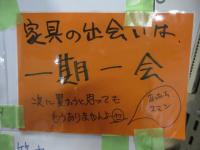 家具の出会いは、
一期一会
次に買おうと思っても
もうありませんよ